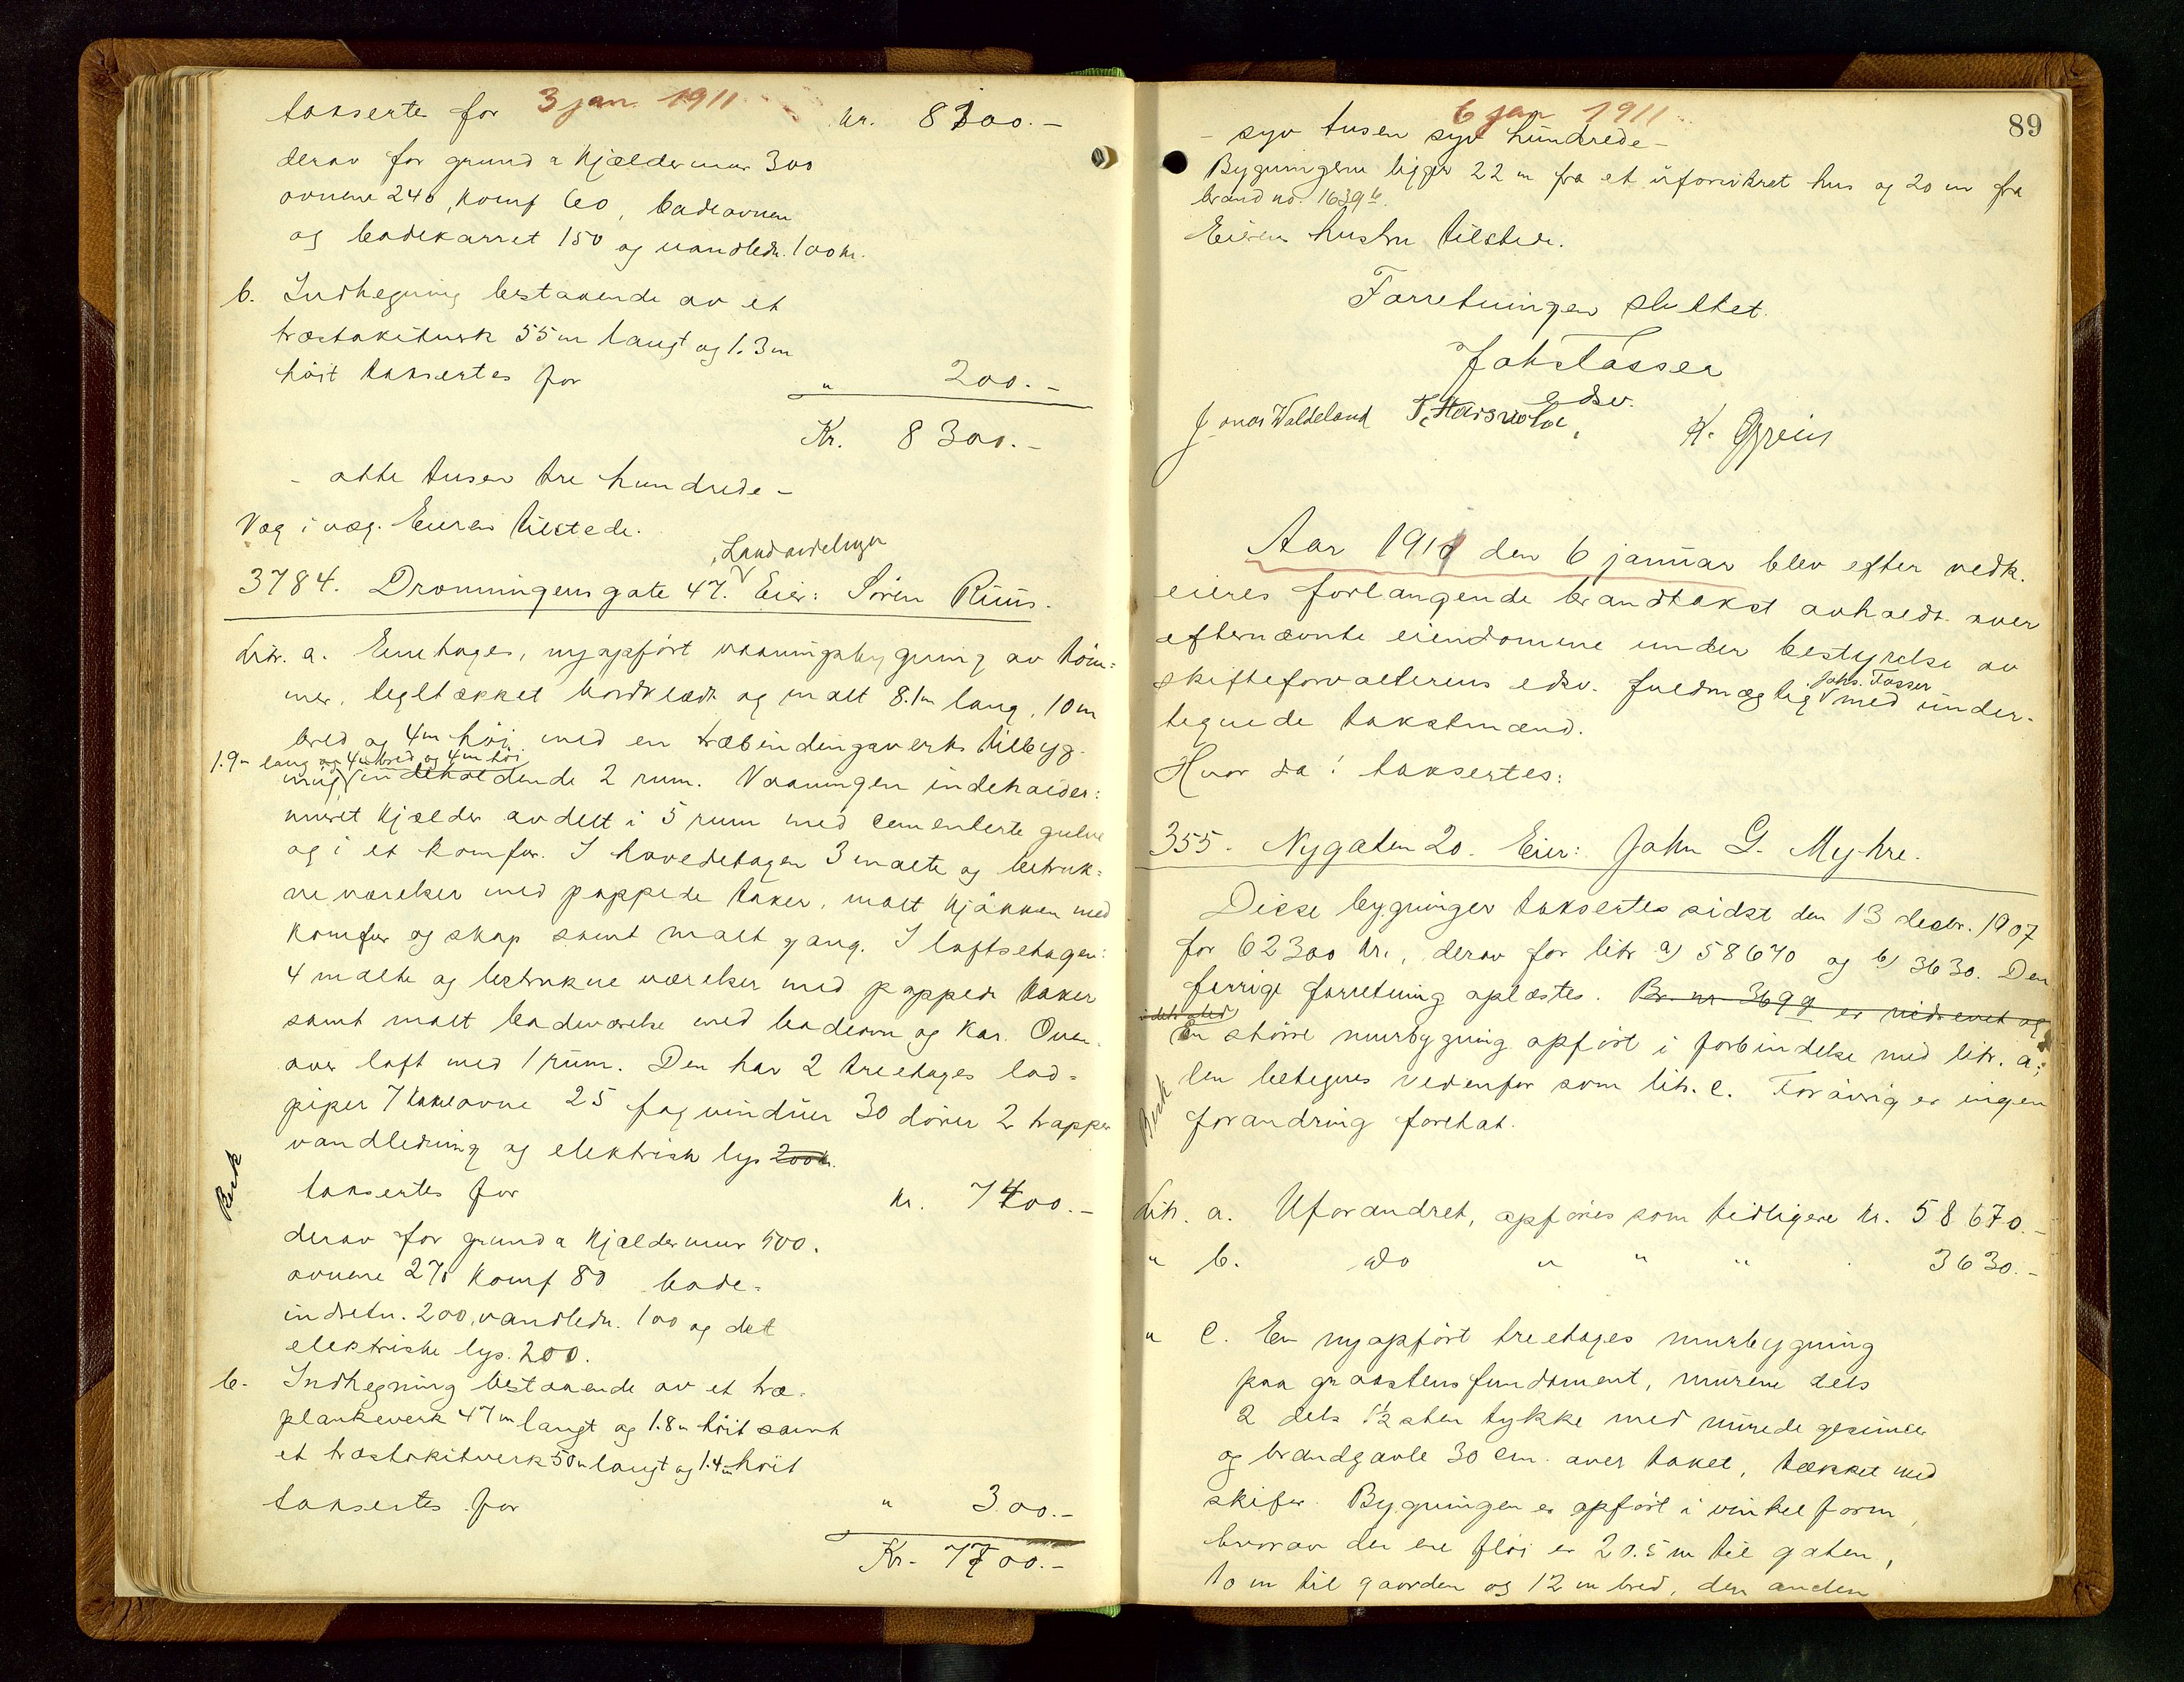 3 jan. 1911
taksertes for kr. 8100.-
derav for grund & kjældermur 300
ovnene 240, komf 60, badeovnen
og badekarret 150 og vandledn. 100 kr.
b. Indhegning bestaaende av et
træstakitverk 55 m langt og 1.3 m
höit taksertes for " 200.-
Kr. 8300.-
- otte tusen tre hundrede -
Væg i væg. Eieren tilstede.
Landavdelingen
3784. Dronningens gate 47. Eier: Sören Ruus.
Litr. a. Enetages, nyopfört vaaningsbygning av töm=
mer, teglt ækket bordklædt og malt 8.1 m lang, 10 m
bred og 4 m höi med en træbindingsverks tilbyg-
1.9 m lang og 4 m bred og 4 m höi
ning indeholdende 2 rum. Vaaningen indeholder:
muret kjælder avdelt i 5 rum med cementerte gulve
og i et komfur. I hovedetagen 3 malte og betruk=
ne værelser med pappede taker, malt kjökken med
komfur og skap samt malt gang. I loftsetagen:
4 malte og betrukne værelser med pappede taker
samt malt badeværelse med badeovn og kar. Oven-
over loft med 1 rum. Den har 2 treetages lod=
piper 7 kakkelovne 25 fag vinduer 30 dörer 2 trapper
vandledning og elektrisk lys 200 kr.
taksertes for kr. 7400.-
derav for grund & kjældermur 500.
ovnene 270 komf 80 bade=
indretn. 200, vandledn. 100 og det
elektriske lys. 200.
b. Indhegning bestaaende av et træ-
plankeverk 47 m langt og 1.8 m höit samt
et træstakitverk 50 m langt og 1.4 m höit
taksertes for " 300.-
Kr. 7700.-
89
6 jan 1911
- syv tusen syv hundrede -
Bygningerne ligger 22 m fra et uforsikret hus og 20 m fra
brand no. 1639 b.
Eierens hustru tilstede.
Forretningen sluttet.
Johs Tasser
edsv.
Jonas Valdeland K. Greis
Aar 1911 den 6 januar blev efter vedk.
eieres forlangende brandtakst avholdt over
efternævnte eiendomme under bestyrelse av
Johs. Tasser
skifteforvalterens edsv. fuldmægtig med under-
tegnede takstmænd.
Hvor da: taksertes:
355. Nygaten 20. Eier: John G. Myhre.
Disse bygninger taksertes sidst den 13 decbr. 1907
for 62300 kr., derav for litr a) 58670 og b) 3630. Den
forrige forretning oplæstes. Br. nr 3699 er nedrevet og
i dets sted
En större murbygning opfört i forbindelse med litr. a;
den betegnes nedenfor som litr. c. Forövrig er ingen
forandring foretat.
Litr. a. Uforandret, opföres som tidligere kr. 58670.-
" b. do " " " 3630.-
" c. En nyopfört treetages murbygning
paa graastensfundament, murene dels
2 dels 1½ sten tykke med murede gesimser
og brandgavle 30 cm. over taket, tækket med
skifer. Bygningen er opfört i vinkelform,
hvorav den ene flöi er 20.5 m til gaten,
10 m til gaarden og 12 m bred, den anden